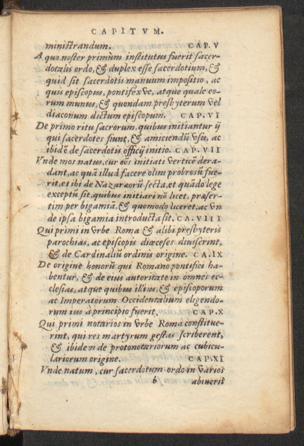 CAPITVM.
ministrandum. CAP.V
A quo noster primùm institutus fuerit sacer-
dotalis ordo, & duplex esse sacerdotium, &
quid sit sacerdotii manuum impositio, ac
quis episcopus, pontifexve, atque quale eo-
rum munus, & quendam presbyterum vel
diaconum dictum episcopum. CAP.VI
De primo ritu sacrorum, quibus initiantur ij
qui sacerdotes fiunt, & amiciendi usu, ac
ibidē de sacerdotis officij initio. CAP.VII
Vnde mos natus, cur eūs initiati verticē dera-
dant, ac quā illud facere olim probrosū fue-
rit, et ibi de Nazareorū secta, et quādo lege
exceptū sit, quibus initiari nō licet, præser-
tim per bigamiā, & quomodo liceret, ac Vn
de ipsa bigamia introducta sit. CA.VIII
Qui primi in Vrbe Roma & alibi presbyteris
parochias, ac episcopis diœceses diuiserint,
& de Cardinaliū ordinis origine. CA.IX
De origine honorū qui Romano pontifici ha-
bentur, & de eius autoritate in omnes ec-
clesias, atque quibus illius, & episcoporum
ac Imperatorum Occidentalium eligendo-
rum ius à principio fuerit. CAP.X
Qui primi notarios in Vrbe Roma constitue-
rint, qui res martyrum gestas scriberent,
& ibidem de protonotariorum ac cubicu-
lariorum origine. CAP.XI
Vnde natum, cur sacerdotum ordo in varios
abiuerit